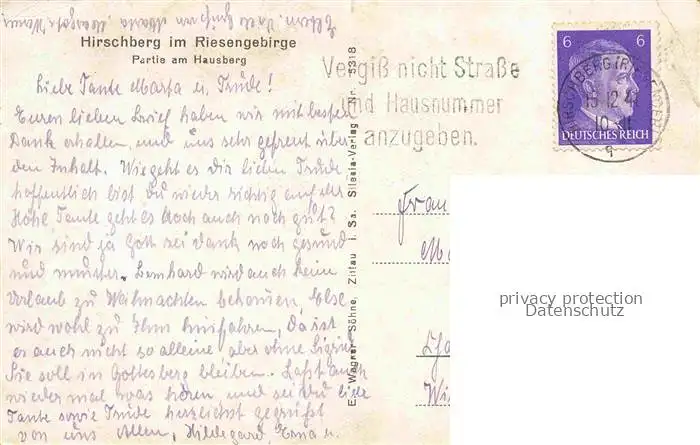 Eltern. Viele Grüße von Maria, Margot u. Heini
Hirschberg im Riesengebirge
Partie am Hausberg
Liebe Tante Marta u. Trude!
Euren lieben Brief haben wir mit besten
Dank erhalten, und uns sehr gefreut über
den Inhalt. Wie geht es dir liebe Trude
hoffentlich bist du wieder richtig auf der
Höhe Tante geht es doch auch noch gut?
Wir sind ja Gott sei dank noch gesund
und munter. Bernhard wird auch keinen
Urlaub zu Weihnachten bekommen, Else
wird wohl zu Ihm hinfahren, da ist
er auch nicht so alleine aber ohne Sigrid
Sie soll in Gottesberg bleiben. Laßt auch
wieder mal was hören und sei du liebe
Tante sowie Trude herzlichst gegrüßt
von uns Allen, Hildegard, Erna u.
E. Wagner Söhne, Zittau i. Sa. Silesia-Verlag Nr. 5318
Vergiß nicht Straße
und Hausnummer
anzugeben.
6 6
DEUTSCHES REICH
HIRSCHBERG (RIESENGEB)
a
Frau
privacy protection
Datenschutz